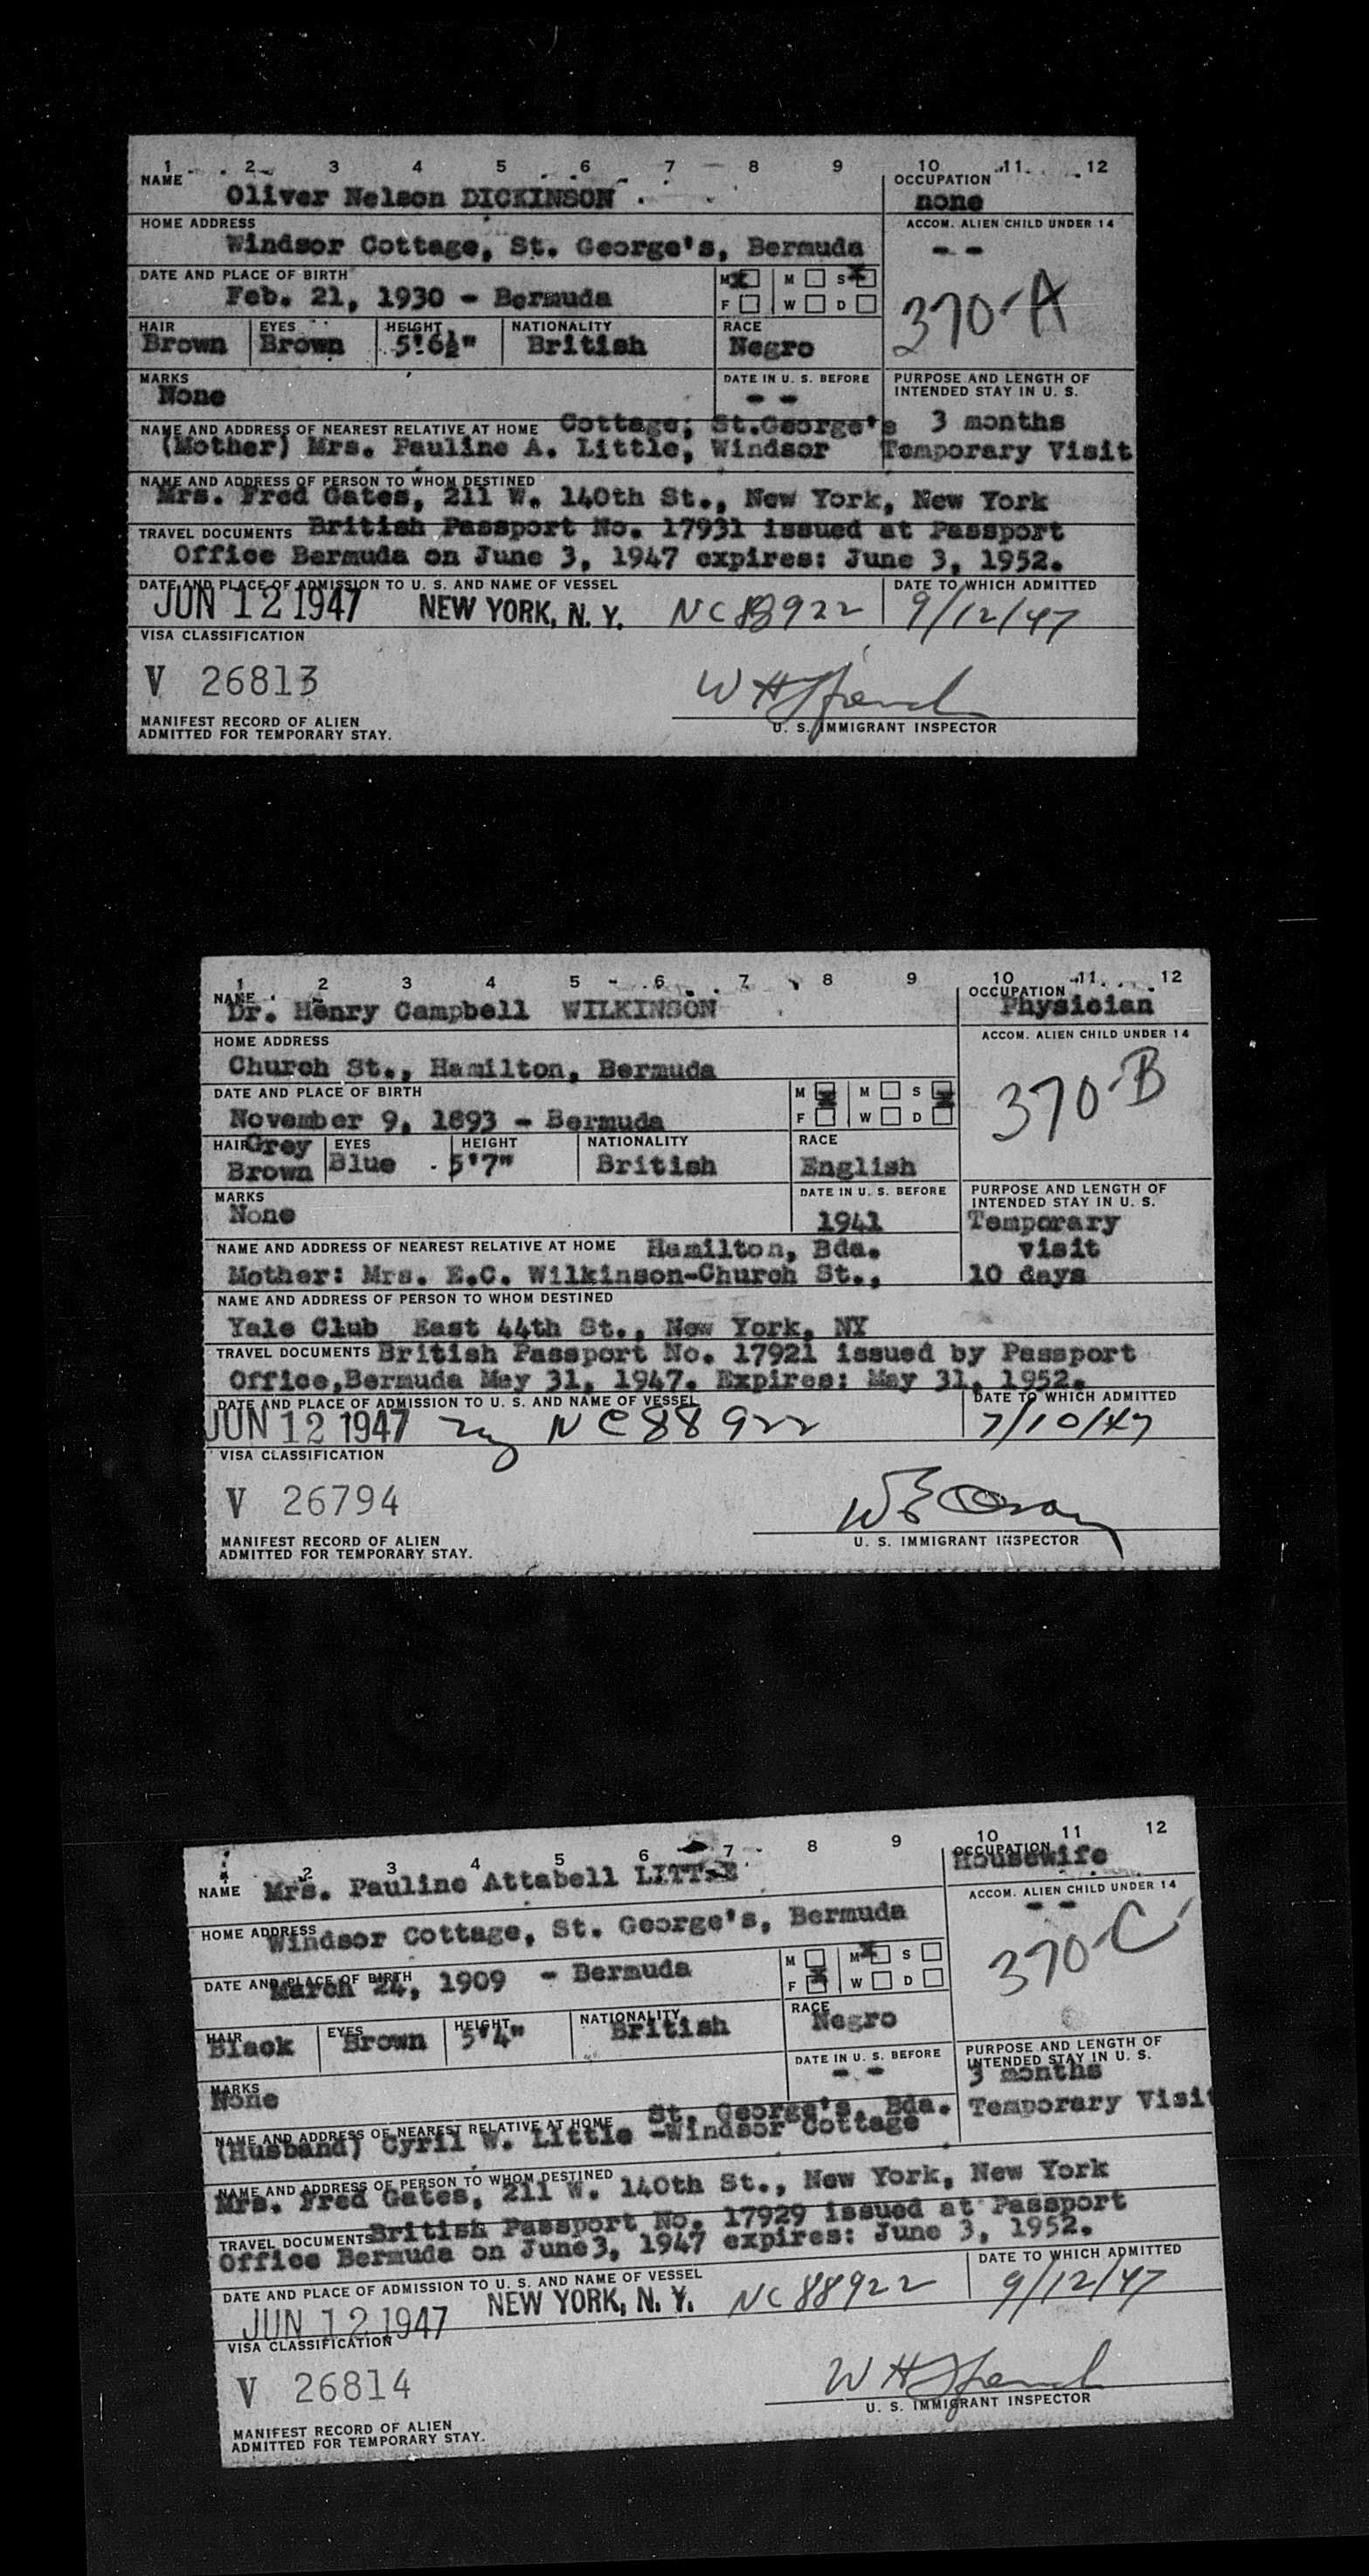 1 2 3 4 5 6 7 8 9 10 11 12
NAME Oliver Nelson DICKINSON
OCCUPATION none
HOME ADDRESS Windsor Cottage, St. George's, Bermuda
ACCOM. ALIEN CHILD UNDER 14 - -
DATE AND PLACE OF BIRTH Feb. 21, 1930 - Bermuda
M X M S X
F W D
370-A
HAIR Brown EYES Brown HEIGHT 5'6½" NATIONALITY British RACE Negro
MARKS None
DATE IN U. S. BEFORE - -
PURPOSE AND LENGTH OF INTENDED STAY IN U. S.
3 months
Temporary Visit
NAME AND ADDRESS OF NEAREST RELATIVE AT HOME Cottage; St.George's
(Mother) Mrs. Pauline A. Little, Windsor
NAME AND ADDRESS OF PERSON TO WHOM DESTINED
Mrs. Fred Gates, 211 W. 140th St., New York, New York
TRAVEL DOCUMENTS British Passport No. 17931 issued at Passport
Office Bermuda on June 3, 1947 expires: June 3, 1952.
DATE AND PLACE OF ADMISSION TO U. S. AND NAME OF VESSEL
JUN 12 1947 NEW YORK, N. Y. NC 88922
DATE TO WHICH ADMITTED
9/12/47
VISA CLASSIFICATION
V 26813
MANIFEST RECORD OF ALIEN
ADMITTED FOR TEMPORARY STAY.
U. S. IMMIGRANT INSPECTOR
1 2 3 4 5 6 7 8 9 10 11 12
NAME Dr. Henry Campbell WILKINSON
OCCUPATION Physician
HOME ADDRESS
Church St., Hamilton, Bermuda
ACCOM. ALIEN CHILD UNDER 14
370-B
DATE AND PLACE OF BIRTH
November 9, 1893 - Bermuda
M X M S X
F W D
HAIR Grey Brown EYES Blue HEIGHT 5'7" NATIONALITY British RACE English
MARKS None
DATE IN U. S. BEFORE 1941
PURPOSE AND LENGTH OF INTENDED STAY IN U. S.
Temporary
visit
10 days
NAME AND ADDRESS OF NEAREST RELATIVE AT HOME Hamilton, Bda.
Mother: Mrs. E.C. Wilkinson-Church St.,
NAME AND ADDRESS OF PERSON TO WHOM DESTINED
Yale Club East 44th St., New York, NY
TRAVEL DOCUMENTS British Passport No. 17921 issued by Passport
Office,Bermuda May 31, 1947. Expires: May 31, 1952.
DATE AND PLACE OF ADMISSION TO U. S. AND NAME OF VESSEL
JUN 12 1947 NC 88922
DATE TO WHICH ADMITTED
7/10/47
VISA CLASSIFICATION
V 26794
MANIFEST RECORD OF ALIEN
ADMITTED FOR TEMPORARY STAY.
U. S. IMMIGRANT INSPECTOR
1 2 3 4 5 6 7 8 9 10 11 12
NAME Mrs. Pauline Attabell LITTLE
OCCUPATION Housewife
HOME ADDRESS Windsor Cottage, St. George's, Bermuda
ACCOM. ALIEN CHILD UNDER 14 - -
370-C
DATE AND PLACE OF BIRTH March 24, 1909 - Bermuda
M M X S
F X W D
HAIR Black EYES Brown HEIGHT 5'4" NATIONALITY British RACE Negro
MARKS None
DATE IN U. S. BEFORE - -
PURPOSE AND LENGTH OF INTENDED STAY IN U. S.
3 months
Temporary Visit
NAME AND ADDRESS OF NEAREST RELATIVE AT HOME St. George's, Bda.
(Husband) Cyril W. Little -Windsor Cottage
NAME AND ADDRESS OF PERSON TO WHOM DESTINED
Mrs. Fred Gates, 211 W. 140th St., New York, New York
TRAVEL DOCUMENTS British Passport No. 17929 issued at Passport
Office Bermuda on June3, 1947 expires: June 3, 1952.
DATE AND PLACE OF ADMISSION TO U. S. AND NAME OF VESSEL
JUN 12 1947 NEW YORK, N. Y. NC 88922
DATE TO WHICH ADMITTED
9/12/47
VISA CLASSIFICATION
V 26814
MANIFEST RECORD OF ALIEN
ADMITTED FOR TEMPORARY STAY.
U. S. IMMIGRANT INSPECTOR